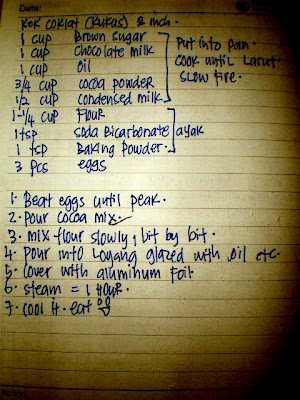 Date:
Kek coklat (kukus) 8 inch.
1 cup Brown sugar
1 cup chocolate milk
1 cup oil
3/4 cup cocoa powder
1/2 cup condensed milk
Put into pan.
cook until Larut.
slow fire.
1-1/4 cup Flour
1 tsp soda Bicarbonate
1 tsp Baking Powder.
ayak
3 pcs eggs
1. Beat eggs until peak.
2. Pour cocoa mix.
3. mix flour slowly, bit by bit.
4. Pour into Loyang glazed with oil etc.
5. Cover with aluminum foil.
6. steam = 1 HOUR.
7. cool it. eat